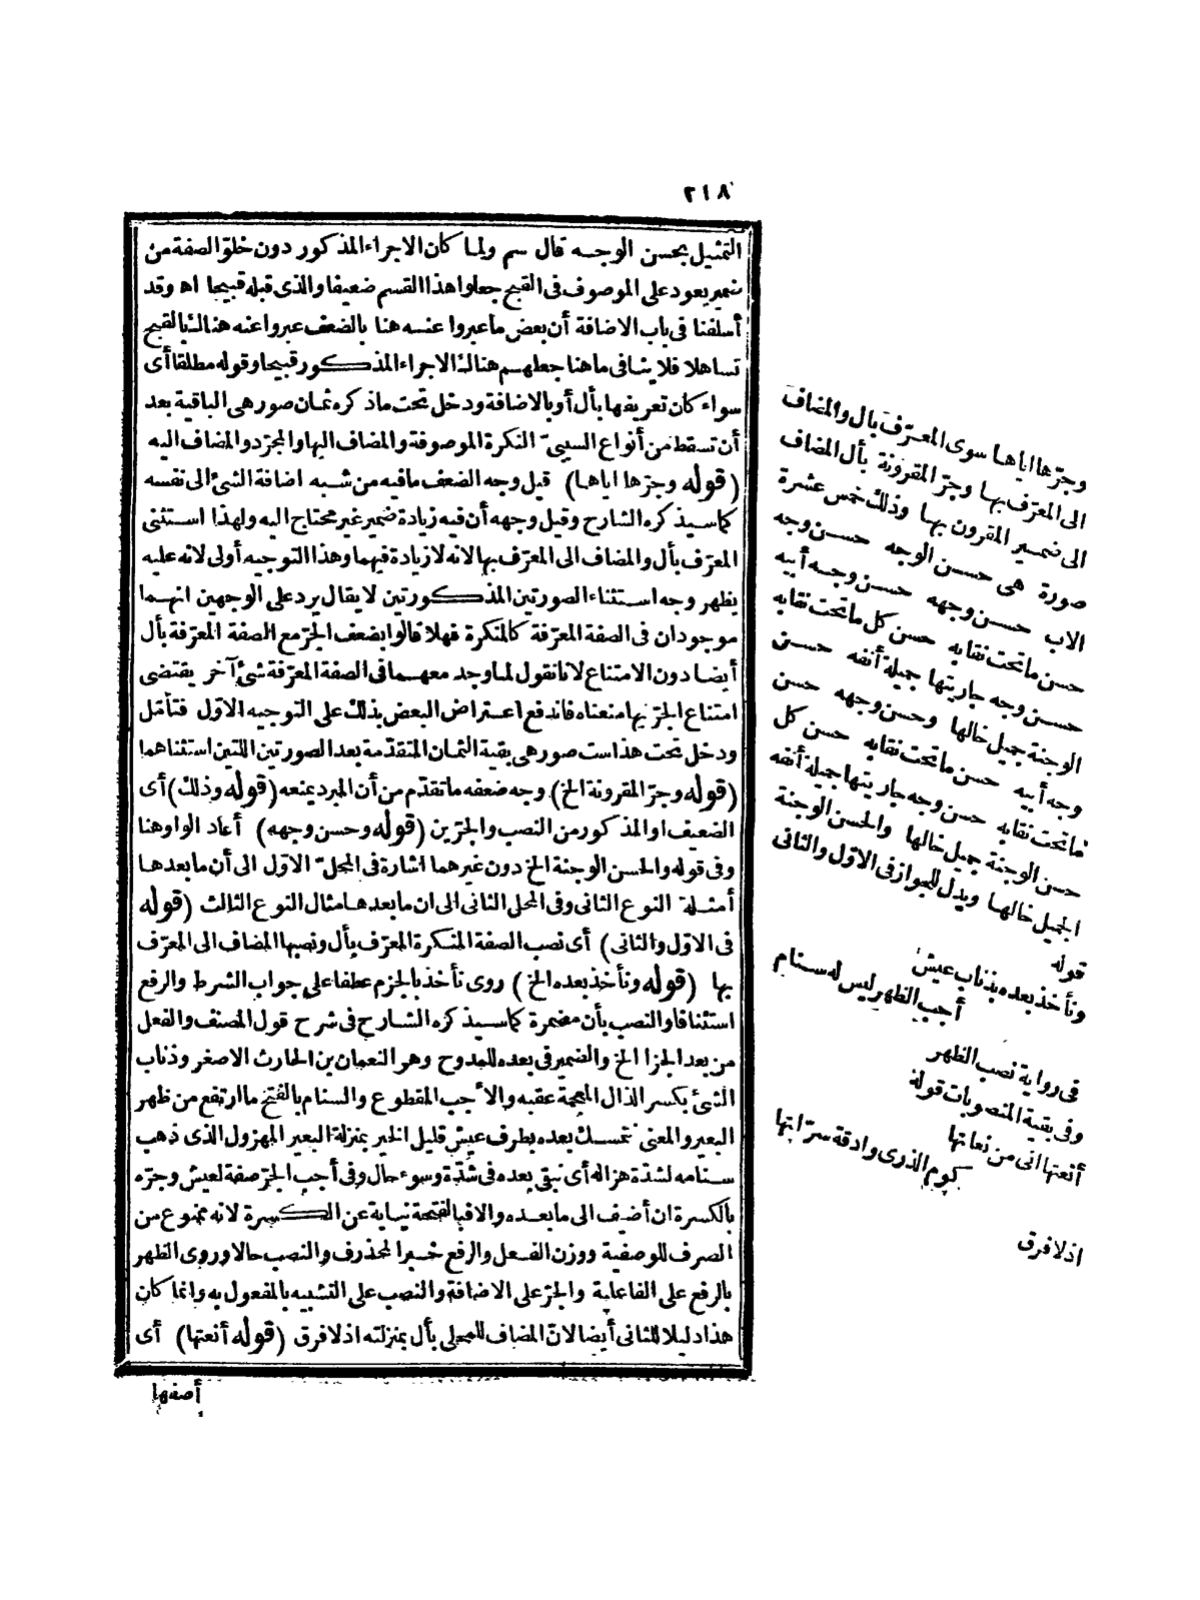 ٢١٨
التمثيل بحسن الوجه قال سم ولما كان الاجراء المذكور دون خلو الصفة من
ضمير يعود على الموصوف فى القبح جعلوا هذا القسم ضعيفا والذى قبله قبيحا اه وقد
أسلفنا فى باب الاضافة أن بعض ما عبروا عنه هنا بالضعف عبروا عنه هناك بالقبح
تساهلا فلا ينافى ما هنا جعلهم هناك الاجراء المذكور قبيحا وقوله مطلقا أى
سواء كان تعريفها بأل أو بالاضافة ودخل تحت ماذكره ثمان صور هى الباقية بعد
أن تسقط من أنواع السببىّ النكرة الموصوفة والمضاف اليها والمجرّد والمضاف اليه
(قوله وجرّها اياها) قيل وجه الضعف مافيه من شبه اضافة الشئ الى نفسه
كما سيذكره الشارح وقيل وجهه أن فيه زيادة ضمير غير محتاج اليه ولهذا استثنى
المعرّف بأل والمضاف الى المعرّف بها لانه لا زيادة فيهما وهذا التوجيه أولى لانه عليه
يظهر وجه استثناء الصورتين المذكورتين لا يقال يرد على الوجهين انهما
موجودان فى الصفة المعرّفة كالمنكرة فهلا قالوا بضعف الجرّ مع الصفة المعرّفة بأل
أيضا دون الامتناع لانا نقول لما وجد معهما فى الصفة المعرّفة شئ آخر يقتضى
امتناع الجرّ بها منعناه فاندفع اعتراض البعض بذلك على التوجيه الاوّل فتأمّل
ودخل تحت هذا ست صور هى بقية الثمان المتقدّمة بعد الصورتين اللتين استثناهما
(قوله وجرّ المقرونة الخ) وجه ضعفه ما تقدّم من أن المبرد يمنعه (قوله وذلك) أى
الضعيف او المذكور من النصب والجرّين (قوله وحسن وجهه) أعاد الواو هنا
وفى قوله والحسن الوجنة الخ دون غيرهما اشارة فى المحلّ الاول الى أن ما بعدها
أمثلة النوع الثانى وفى المحل الثانى الى ان ما بعدها مثال النوع الثالث (قوله
فى الاوّل والثانى) أى نصب الصفة المنكرة المعرّف بأل ونصبها المضاف الى المعرّف
بها (قوله ونأخذ بعده الخ) روى نأخذ بالجزم عطفا على جواب الشرط والرفع
استئنافا والنصب بأن مضمرة كما سيذكره الشارح فى شرح قول المصنف والفعل
من بعد الجزا الخ والضمير فى بعده للممدوح وهو النعمان بن الحارث الاصغر وذناب
الشئ بكسر الذال المعجمة عقبه والأجب المقطوع والسنام بالفتح ما ارتفع من ظهر
البعير والمعنى نتمسك بعده بطرف عيش قليل الخير بمنزلة البعير المهزول الذى ذهب
سنامه لشدّة هزاله أى نبقى بعده فى شدّة وسوء حال وفى أجب الجرّ صفة لعيش وجرّه
بالكسرة ان أضيف الى ما بعده والا فبالفتحة نيابة عن الكسرة لانه ممنوع من
الصرف للوصفية ووزن الفعل والرفع خبرا لمحذوف والنصب حالا وروى الظهر
بالرفع على الفاعلية والجرّ على الاضافة والنصب على التشبيه بالمفعول به وانما كان
هذا دليلا للثانى أيضا لانّ المضاف للمحلى بأل بمنزلته اذ لا فرق (قوله أنعتها) أى
أصفها
وجرّها اياها سوى المعرّف بال والمضاف
الى المعرّف بها وجرّ المقرونة بأل المضاف
الى ضمير المقرون بها وذلك خمس عشرة
صورة هى حسن الوجه حسن وجه
الاب حسن وجهه حسن وجه أبيه
حسن ما تحت نقابه حسن كل ما تحت نقابه
حسن وجه جاريتها جميلة أنفه حسن
الوجنة جميل خالها وحسن وجهه حسن
وجه أبيه حسن ما تحت نقابه حسن كل
ما تحت نقابه حسن وجه جاريتها جميلة أنفه
حسن الوجنة جميل خالها والحسن الوجنة
الجميل خالها ويدل للجواز فى الاوّل والثانى
قوله
ونأخذ بعده بذناب عيش
أجب الظهر ليس له سنام
فى رواية نصب الظهر
وفى بقية المنصوبات قوله
أنعتها انى من نعاتها
كوم الذرى وادقة سرّاتها
اذ لا فرق